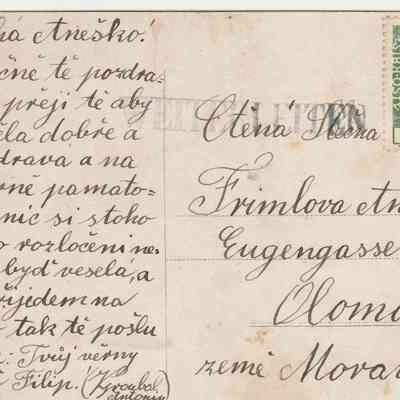 há Aneško!
čně tě pozdra=
přeji tě aby
ěla dobře a
drava a na
rně pamato=
nic si stoho
o rozločeni ne=
byď veselá, a
řijedem na
tak tě pošlu
Tvůj věrny
Filip. (Zroubal
Antonin)
WEITERLEITEN
Ctěná Slečna
Frimlova An
Eugengasse
Olomo
země Morav